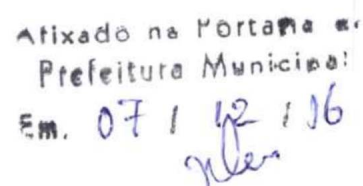 Afixado na Portaria
Prefeitura Municipal
Em. 07 / 12 / 16